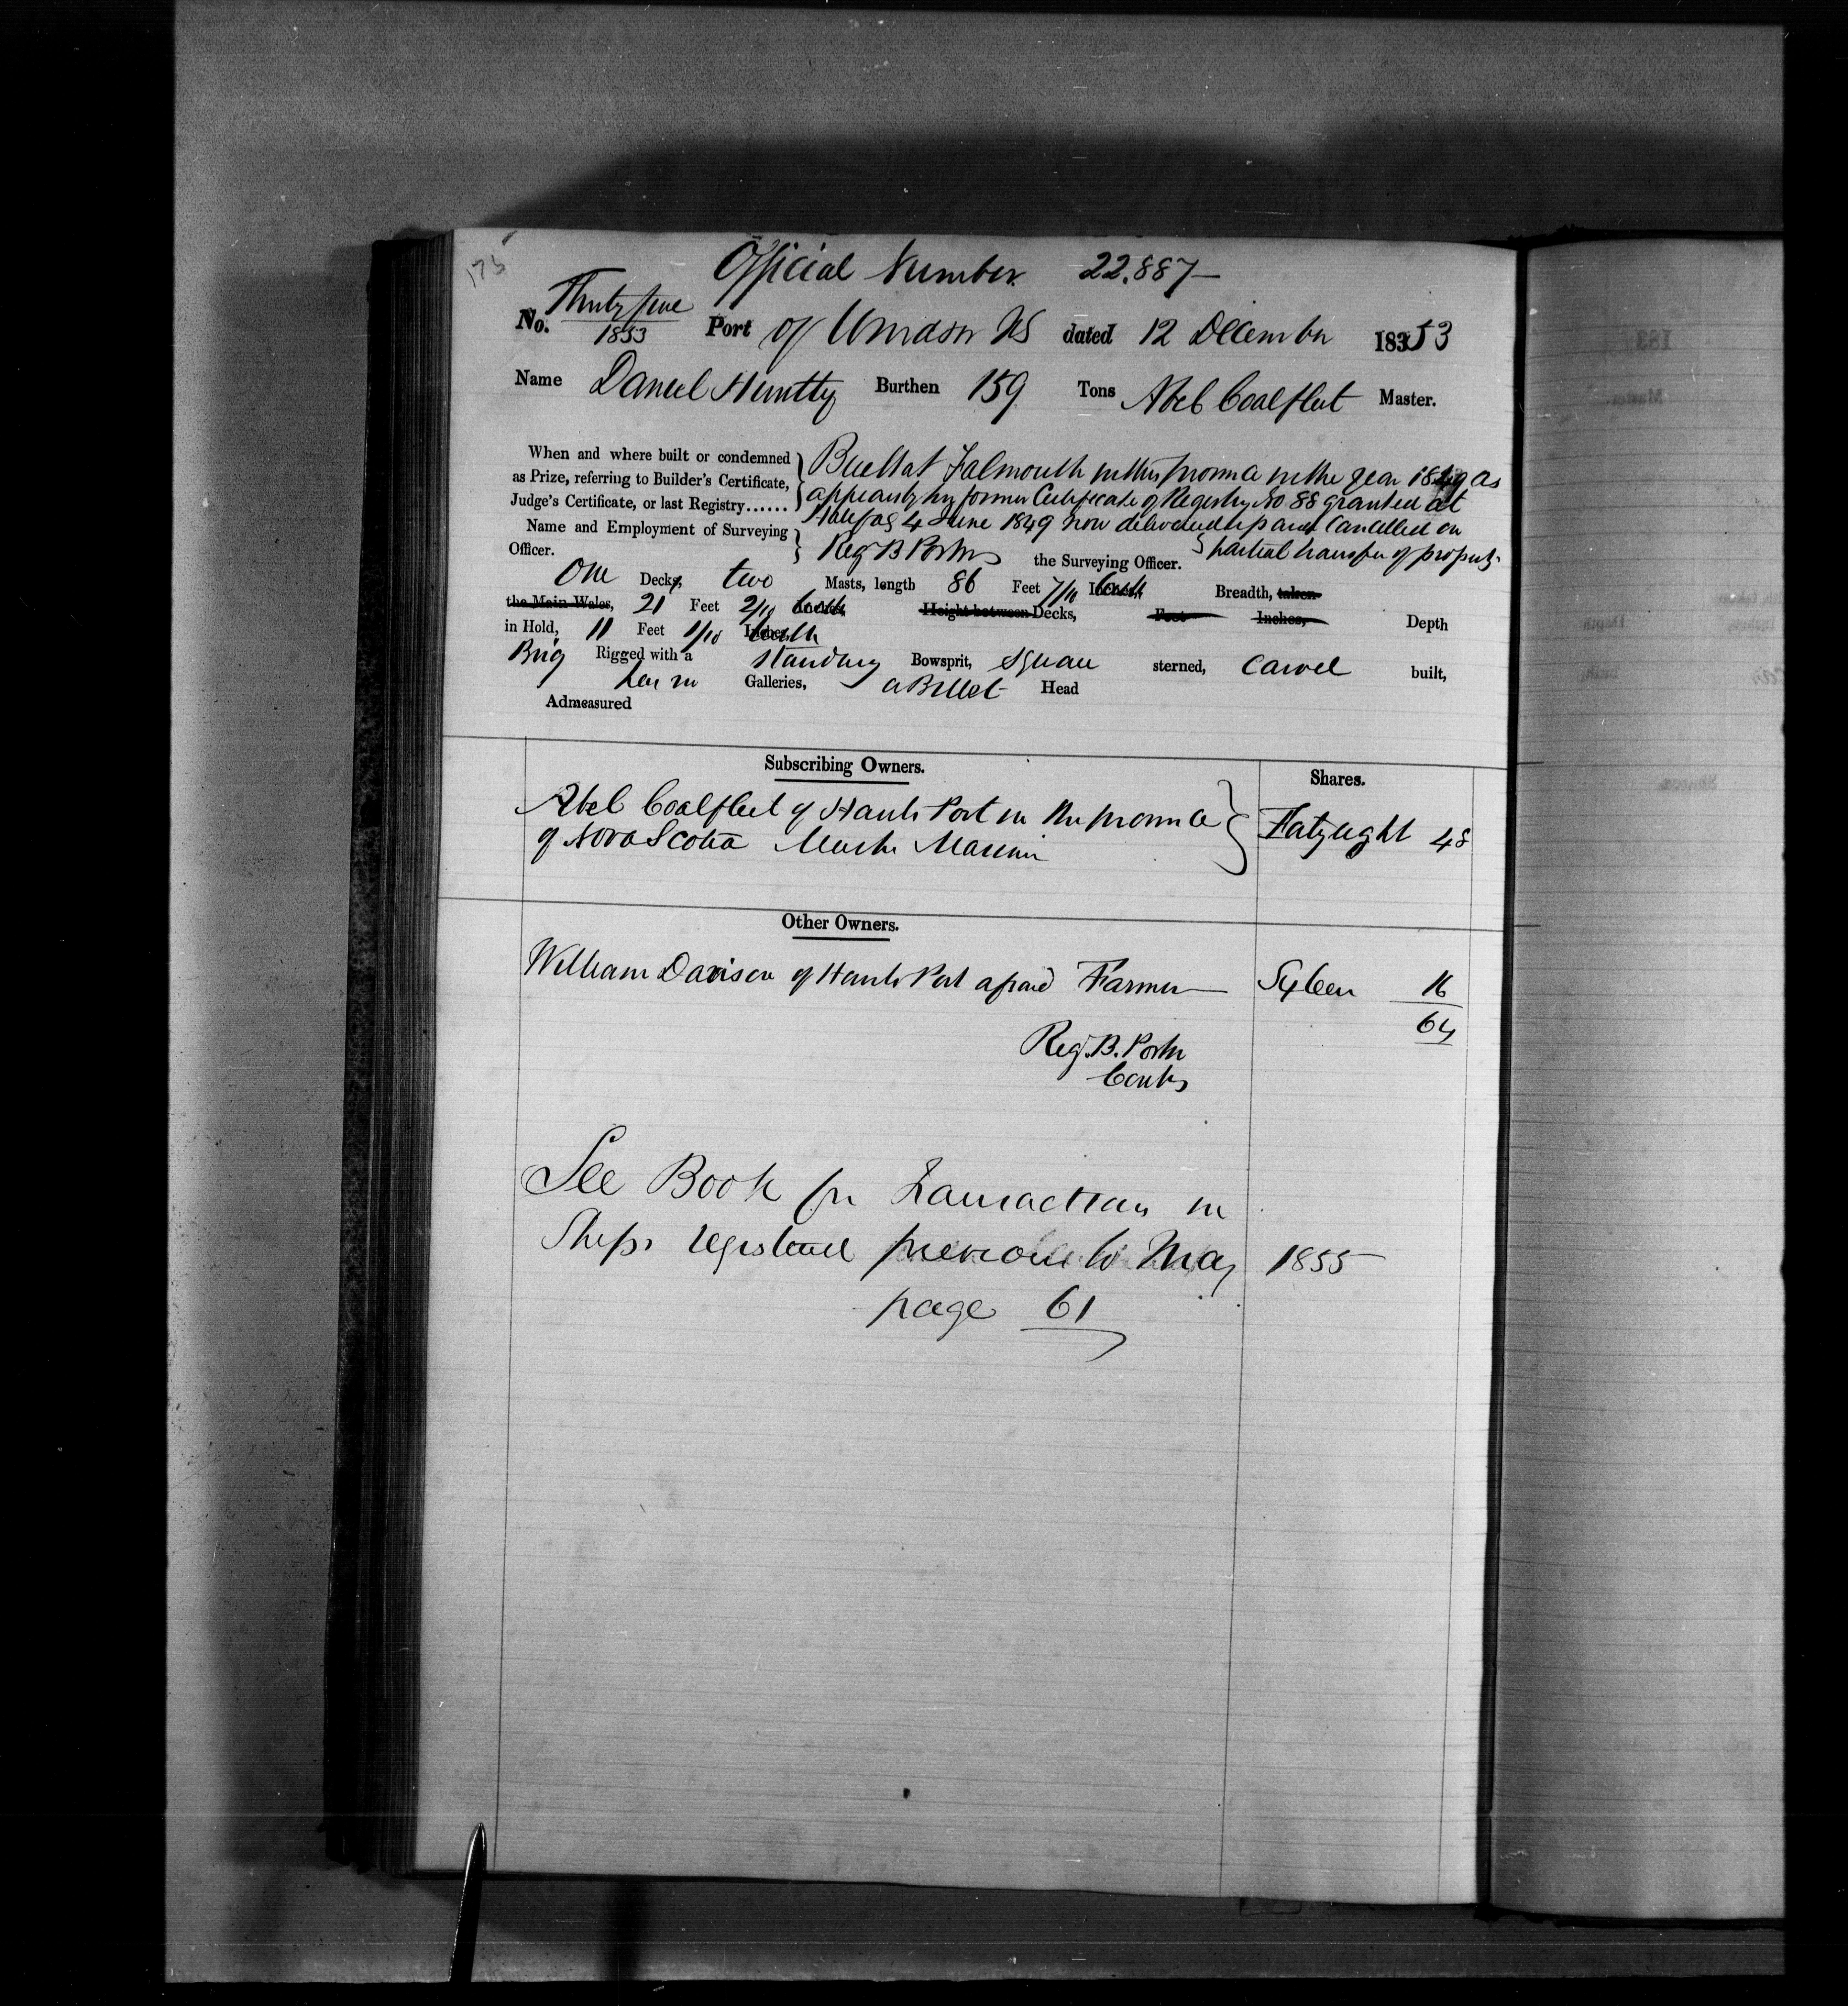 175
Official Number 22.887
No. Thirty five 1853 Port of Windsor NS dated 12 December 1853
Name Daniel Huntley Burthen 159 Tons Abel Coalfleet Master.
When and where built or condemned as Prize, referring to Builder's Certificate, Judge's Certificate, or last Registry......
Built at Falmouth in this province in the year 1849 as
appears by her former Certificate of Registry No 88 granted at
Halifax 4 June 1849 now delivered up and Cancelled on
partial transfer of property.
Name and Employment of Surveying Officer. Reg B Porter the Surveying Officer.
One Decks, two Masts, length 86 Feet 7/10 Inches Breadth, taken
the Main Wales, 21 Feet 2/10 Inches, Height between Decks, Feet Inches, Depth
in Hold, 11 Feet 1/10 Inches
Brig Rigged with a standing Bowsprit, square sterned, carvel built,
Galleries, a Billet Head
Admeasured
Subscribing Owners. Shares.
Abel Coalfleet of Hants Port in the province
of Nova Scotia Master Mariner Fortyeight 48
Other Owners.
William Davison of Hants Port aforesaid Farmer Sixteen 16
64
Reg. B. Porter
Contr
See Book for Transactions in
Ships registered previous to May 1855
page 61